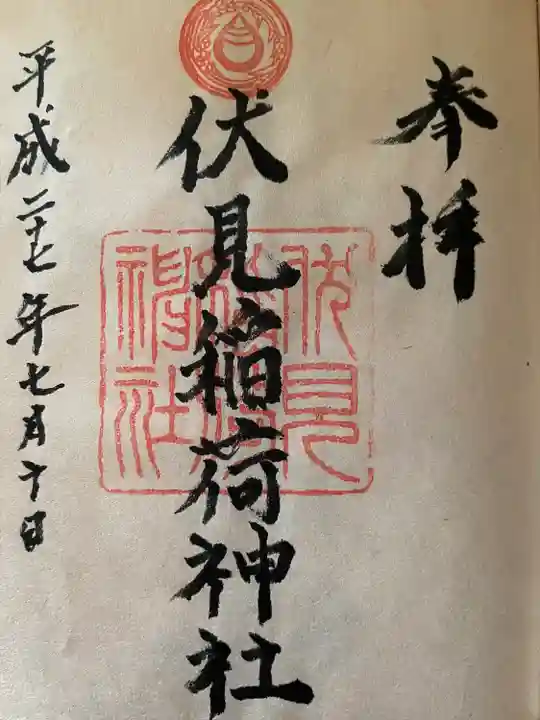 奉拝
伏見稲荷神社
平成二十七年七月十日
伏見
神社